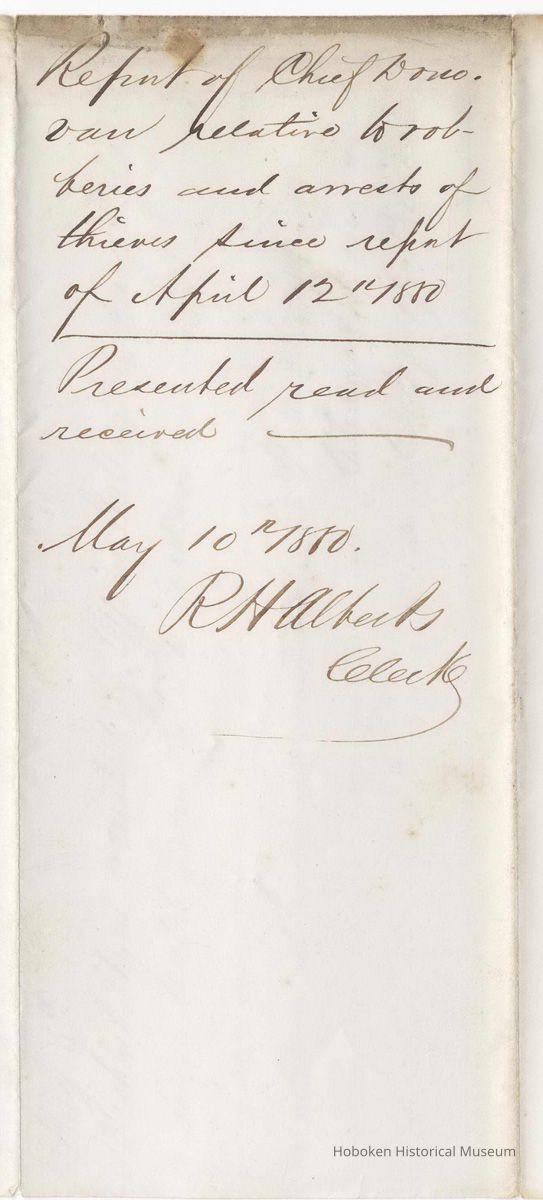 Report of Chief Dono-
van relative to rob-
beries and arrests of
thieves since report
of April 12th 1880
Presented read and
received
May 10th 1880.
R H Alberts
Clerk
Hoboken Historical Museum